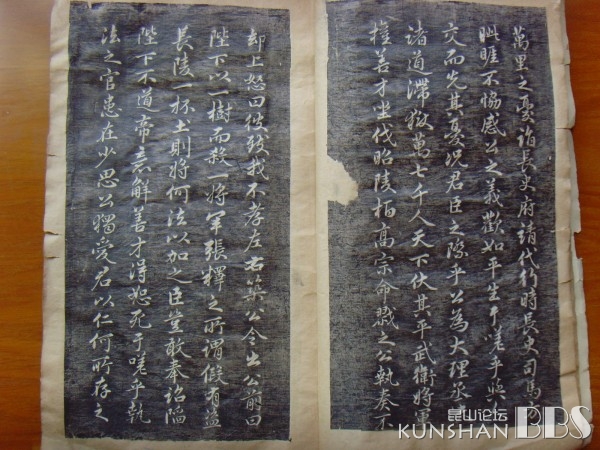 萬里之憂詣長史府請代行時長史司馬
眦睚不協感公之義歡如平生于嗟乎與
交而先其憂況君臣之際乎公為大理丞
諸道滯獄萬七千人天下伏其平武衛將軍
權善才坐伐昭陵柏高宗命戮之公執奏不
却上怒曰彼致我不孝左右策公令出公前曰
陛下以一樹而殺一將軍張釋之所謂假有盜
長陵一抔土則將何法以加之臣豈敢奉詔陷
陛下不道帝意解善才得恕死于嗟乎執
法之官患在少恩公獨愛君以仁何所存之
昆山论坛
KUNSHAN BBS